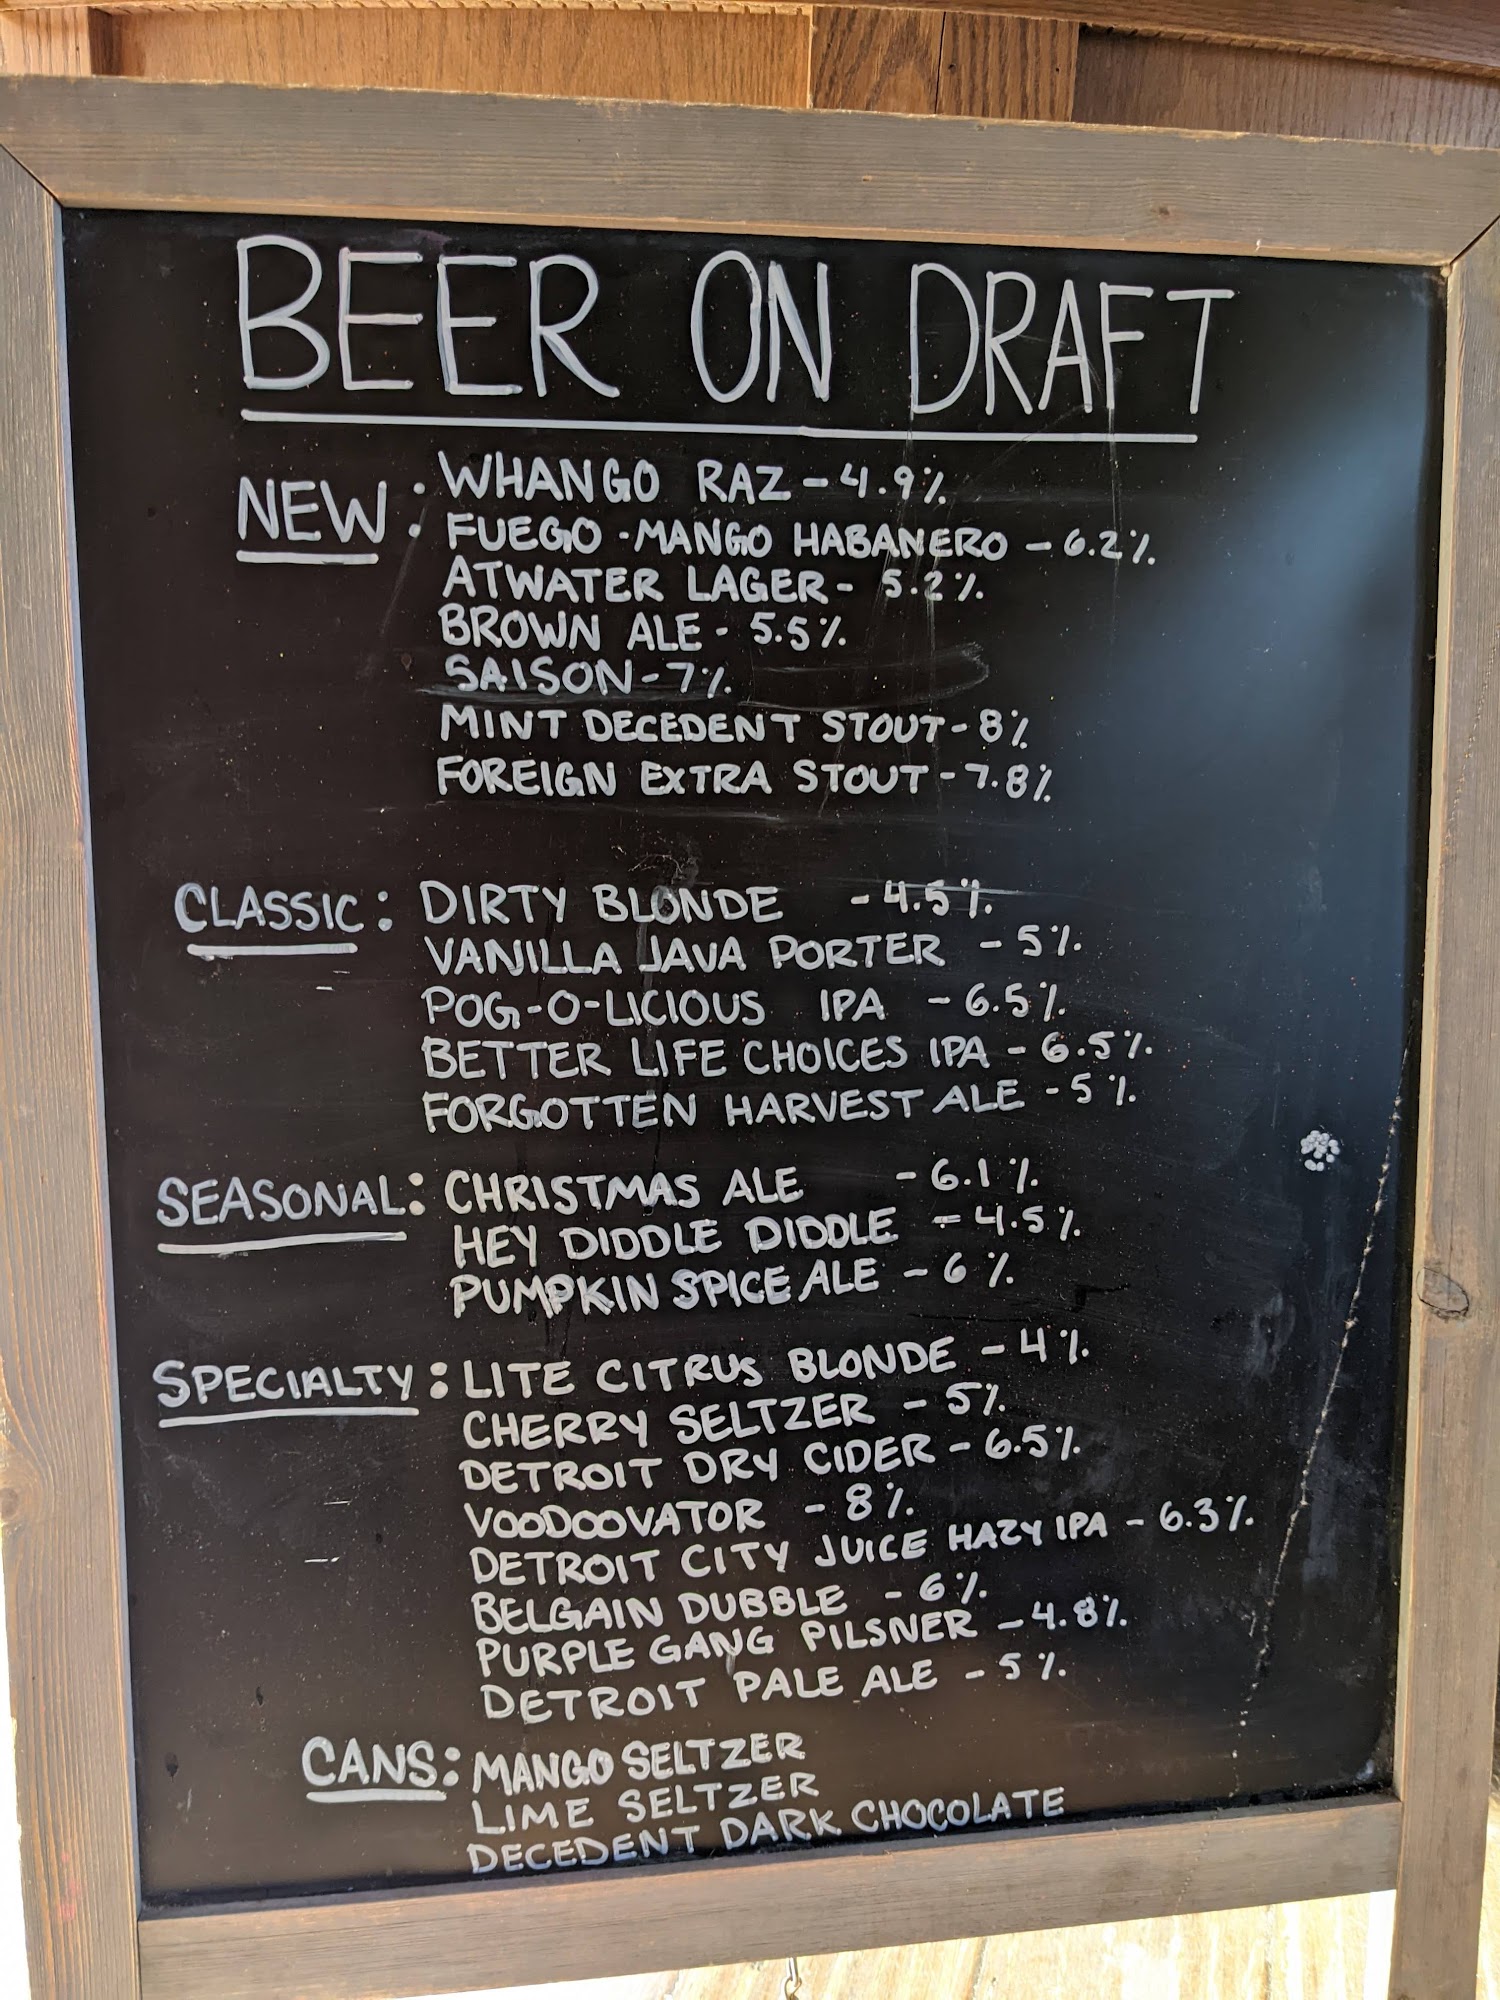 BEER ON DRAFT
NEW: WHANGO RAZ - 4.9%
FUEGO - MANGO HABANERO - 6.2%
ATWATER LAGER - 5.2%
BROWN ALE - 5.5%
SAISON - 7%
MINT DECEDENT STOUT - 8%
FOREIGN EXTRA STOUT - 7.8%
CLASSIC: DIRTY BLONDE - 4.5%
VANILLA JAVA PORTER - 5%
POG-O-LICIOUS IPA - 6.5%
BETTER LIFE CHOICES IPA - 6.5%
FORGOTTEN HARVEST ALE - 5%
SEASONAL: CHRISTMAS ALE - 6.1%
HEY DIDDLE DIDDLE - 4.5%
PUMPKIN SPICE ALE - 6%
SPECIALTY: LITE CITRUS BLONDE - 4%
CHERRY SELTZER - 5%
DETROIT DRY CIDER - 6.5%
VOODOOVATOR - 8%
DETROIT CITY JUICE HAZY IPA - 6.3%
BELGAIN DUBBLE - 6%
PURPLE GANG PILSNER - 4.8%
DETROIT PALE ALE - 5%
CANS: MANGO SELTZER
LIME SELTZER
DECEDENT DARK CHOCOLATE